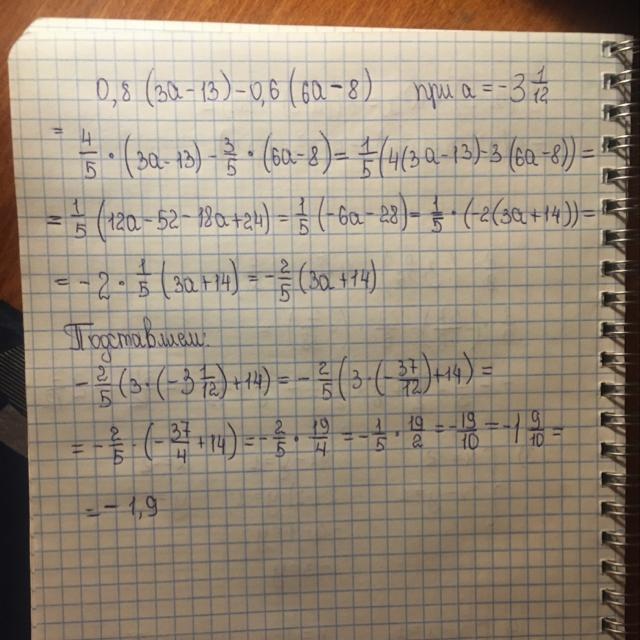 0,8 (3a-13)-0,6 (6a-8) при a = -3 1/12
= 4/5 · (3a-13) - 3/5 · (6a-8) = 1/5 (4(3a-13)-3(6a-8)) =
= 1/5 (12a-52-18a+24) = 1/5 (-6a-28) = 1/5 · (-2(3a+14)) =
= -2 · 1/5 (3a+14) = -2/5 (3a+14)
Подставляем:
-2/5 (3·(-3 1/12)+14) = -2/5 (3·(-37/12)+14) =
= -2/5 · (-37/4 +14) = -2/5 · 19/4 = -1/5 · 19/2 = -19/10 = -1 9/10 =
= -1,9